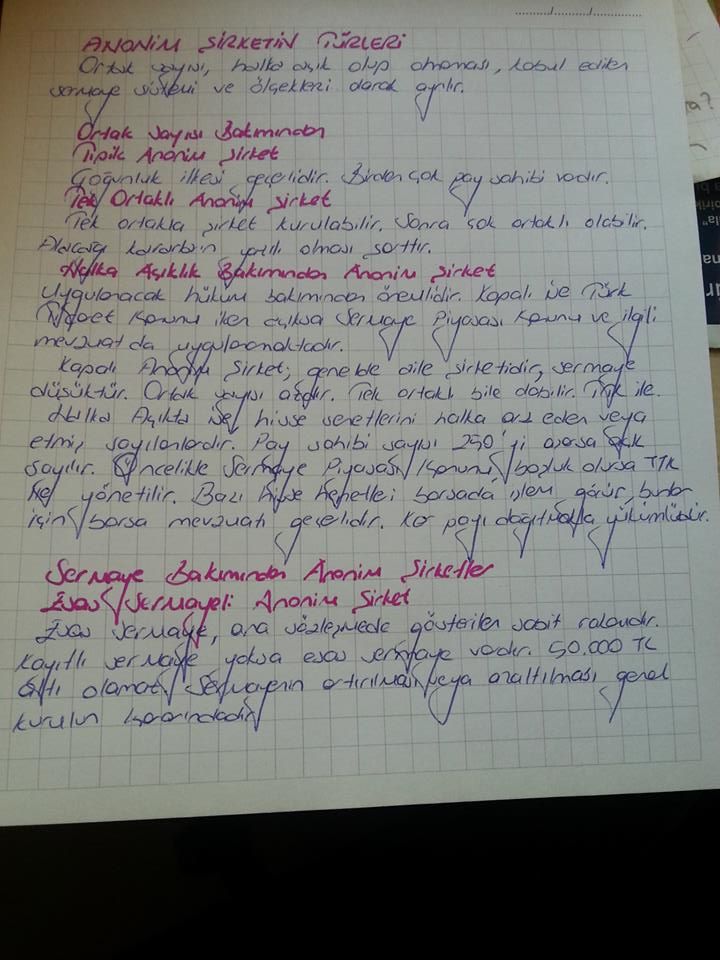 ....../....../............
ANONİM ŞİRKETİN TÜRLERİ
Ortak sayısı, halka açık olup olmaması, kabul edilen
sermaye sistemi ve ölçekleri olarak ayrılır.
Ortak sayısı Bakımından
Tipik Anonim Şirket
Çoğunluk ilkesi geçerlidir. Birden çok pay sahibi vardır.
Tek Ortaklı Anonim Şirket
Tek ortakla şirket kurulabilir. Sonra çok ortaklı olabilir.
Alacağı kararların yazılı olması şarttır.
Halka Açıklık Bakımından Anonim Şirket
Uygulanacak hüküm bakımından önemlidir. Kapalı ise Türk
Ticaret Kanunu iken açıksa Sermaye Piyasası Kanunu ve ilgili
mevzuat da uygulanmaktadır.
Kapalı Anonim Şirket; genelde aile şirketidir, sermaye
düşüktür. Ortak sayısı azdır. Tek ortaklı bile olabilir. ile.
Halka Açıkta ise hisse senetlerini halka arz eden veya
etmiş sayılanlardır. Pay sahibi sayısı 250'yi aşarsa açık
sayılır. Öncelikle Sermaye Piyasası Kanunu, boşluk olursa TTK
yönetilir. Bazı hisse borsada işlem görür, bunlar
için borsa mevzuatı geçerlidir. Kar payı dağıtmakla yükümlüdür.
Sermaye Bakımından Anonim Şirketler
Esas Sermayeli Anonim Şirket
Esas sermaye, ana sözleşmede gösterilen sabit rakamdır.
Kayıtlı sermaye yoksa esas sermaye vardır. 50.000 TL
altı olamaz. Sermayenin artırılması veya azaltılması genel
kurulun kararındadır.